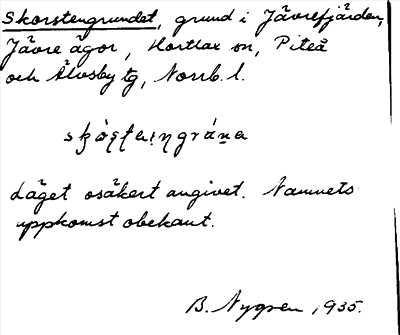 Skorstengrundet, grund i Jävrefjärden,
Jävre ägor, Hortlax sn, Piteå
och Älvsby tg, Norrb. l.
Läget osäkert angivet. Namnets
uppkomst obekant.
B. Nygren, 1935.